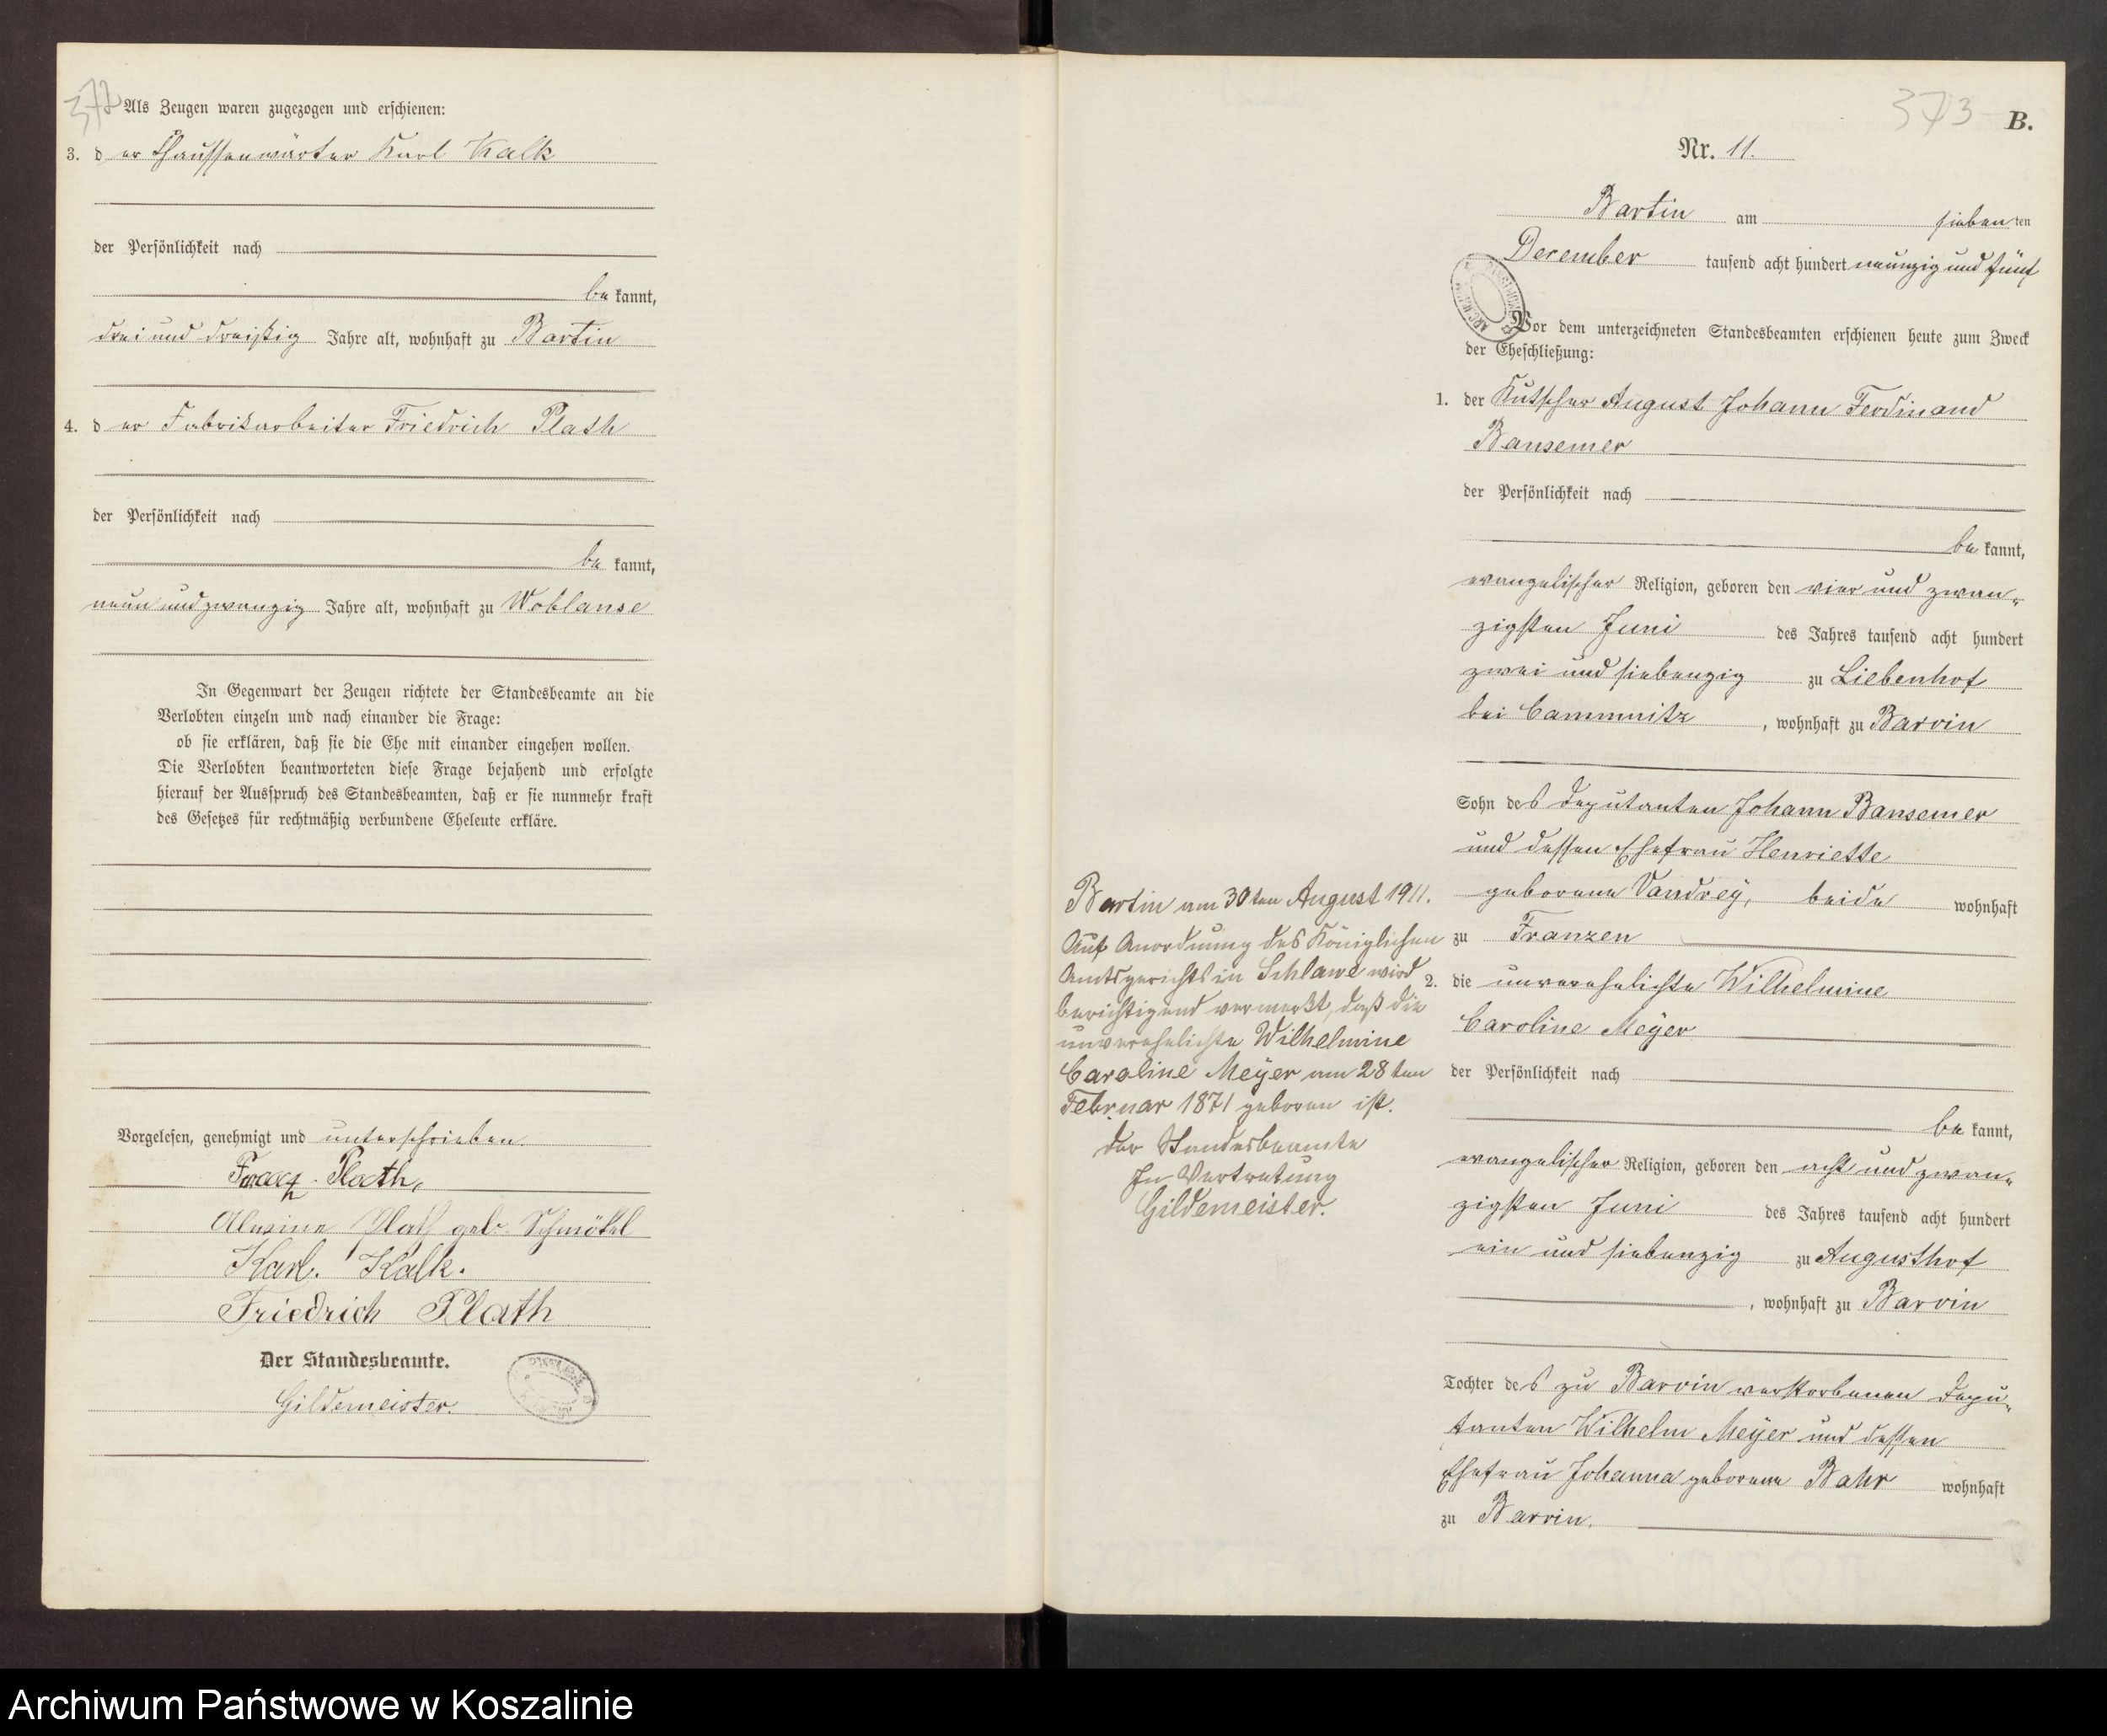 372
Als Zeugen waren zugezogen und erschienen:
3. der Chausseewärter Karl Kalk
der Persönlichkeit nach
be kannt,
drei und dreißig Jahre alt, wohnhaft zu Bartin
4. der Fabrikarbeiter Friedrich Plath
der Persönlichkeit nach
be kannt,
neun und zwanzig Jahre alt, wohnhaft zu Woblanse
In Gegenwart der Zeugen richtete der Standesbeamte an die
Verlobten einzeln und nach einander die Frage:
ob sie erklären, daß sie die Ehe mit einander eingehen wollen.
Die Verlobten beantworteten diese Frage bejahend und erfolgte
hierauf der Ausspruch des Standesbeamten, daß er sie nunmehr kraft
des Gesetzes für rechtmäßig verbundene Eheleute erkläre.
Vorgelesen, genehmigt und unterschrieben.
Franz Plath,
Alwine Plath geb. Schmökel
Karl. Kalk.
Friedrich Plath
Der Standesbeamte.
Gildemeister.
373
B.
Nr. 11.
Bartin am sieben ten
December tausend acht hundert neunzig und fünf
Vor dem unterzeichneten Standesbeamten erschienen heute zum Zweck
der Eheschließung:
1. der Kutscher August Johann Ferdinand
Bansemer
der Persönlichkeit nach
be kannt,
evangelischer Religion, geboren den vier und zwan-
zigsten Juni des Jahres tausend acht hundert
zwei und siebenzig zu Liebenhof
bei Cammnitz, wohnhaft zu Barvin
Sohn des Deputanten Johann Bansemer
und dessen Ehefrau Henriette
geborene Vandrey, beide wohnhaft
zu Franzen
2. die unverehelichte Wilhelmine
Caroline Meyer
der Persönlichkeit nach
be kannt,
evangelischer Religion, geboren den acht und zwan-
zigsten Juni des Jahres tausend acht hundert
ein und siebenzig zu Augusthof
, wohnhaft zu Barvin
Tochter des zu Barvin verstorbenen Depu-
tanten Wilhelm Meyer und dessen
Ehefrau Johanna geborene Bahr wohnhaft
zu Barvin.
Bartin am 30ten August 1911.
Auf Anordnung des Königlichen
Amtsgerichts in Schlawe wird
berichtigend vermerkt, daß die
unverehelichte Wilhelmine
Caroline Meyer am 28ten
Februar 1871 geboren ist.
Der Standesbeamte
In Vertretung
Gildemeister.
Archiwum Państwowe w Koszalinie